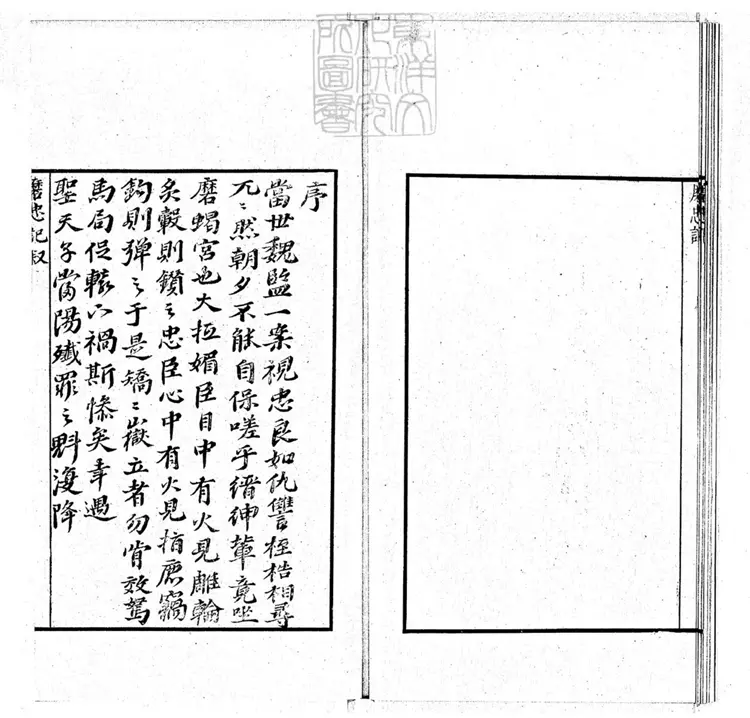 東洋文
化研究
所圖書
磨忠記
序
當世魏監一案視忠良如仇讐桎梏相尋
兀〻然朝夕不能自保嗟乎縉紳輩竟坐
磨蝎宮也大抵媚臣目中有火見雕輪
炙轂則鑽之忠臣心中有火見指鹿竊
鈎則彈之于是矯〻嶽立者勿肯效駑
馬局促轅下禍斯慘矣幸遇
聖天子當陽殲罪之魁復降
磨忠記叙